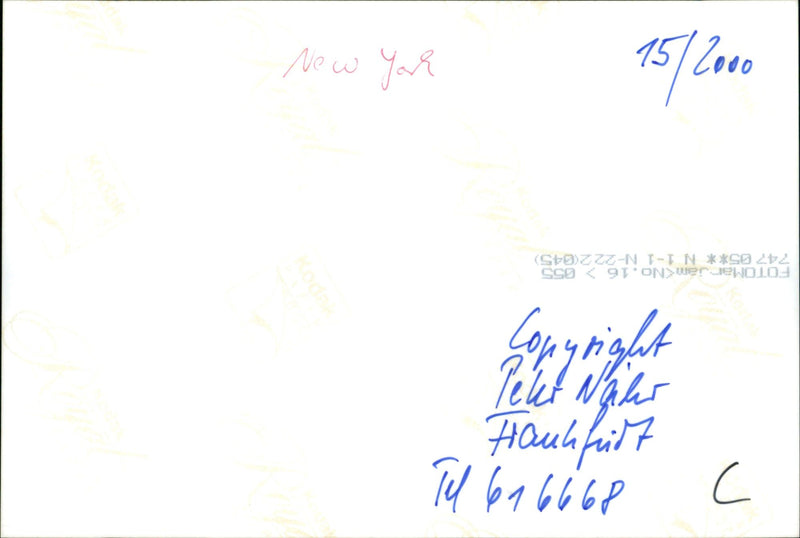 New York
15/2000
FOTOMarjam<No.16 > 055
747 05** N 1-1 N-222(045)
Copyright
Peter
Frankfurt
Tel 616668
C
Kodak
Kodak
Kodak